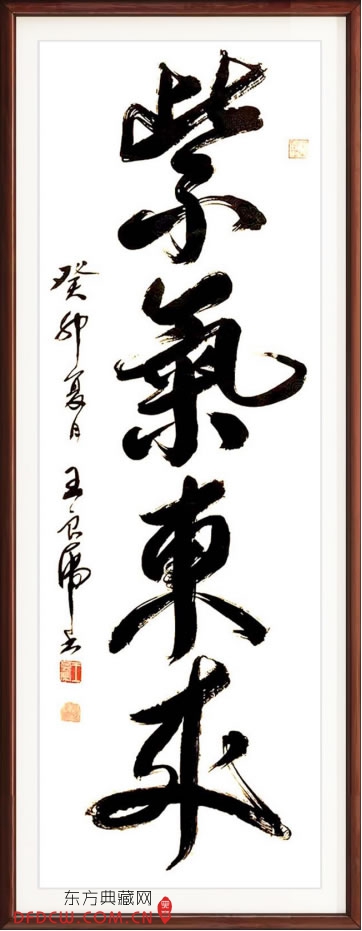 紫氣東來
癸卯夏日 王良虎书
东方典藏网
DFDCW.COM.CN